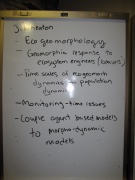 - Eco geomorphology
- Geomorphic response to
ecosystem engineers
- Time scales of ecogeomorph
dynamics population
dynamics
- Monitoring - time issues
- Couple agent based models
to morpho-dynamic
models